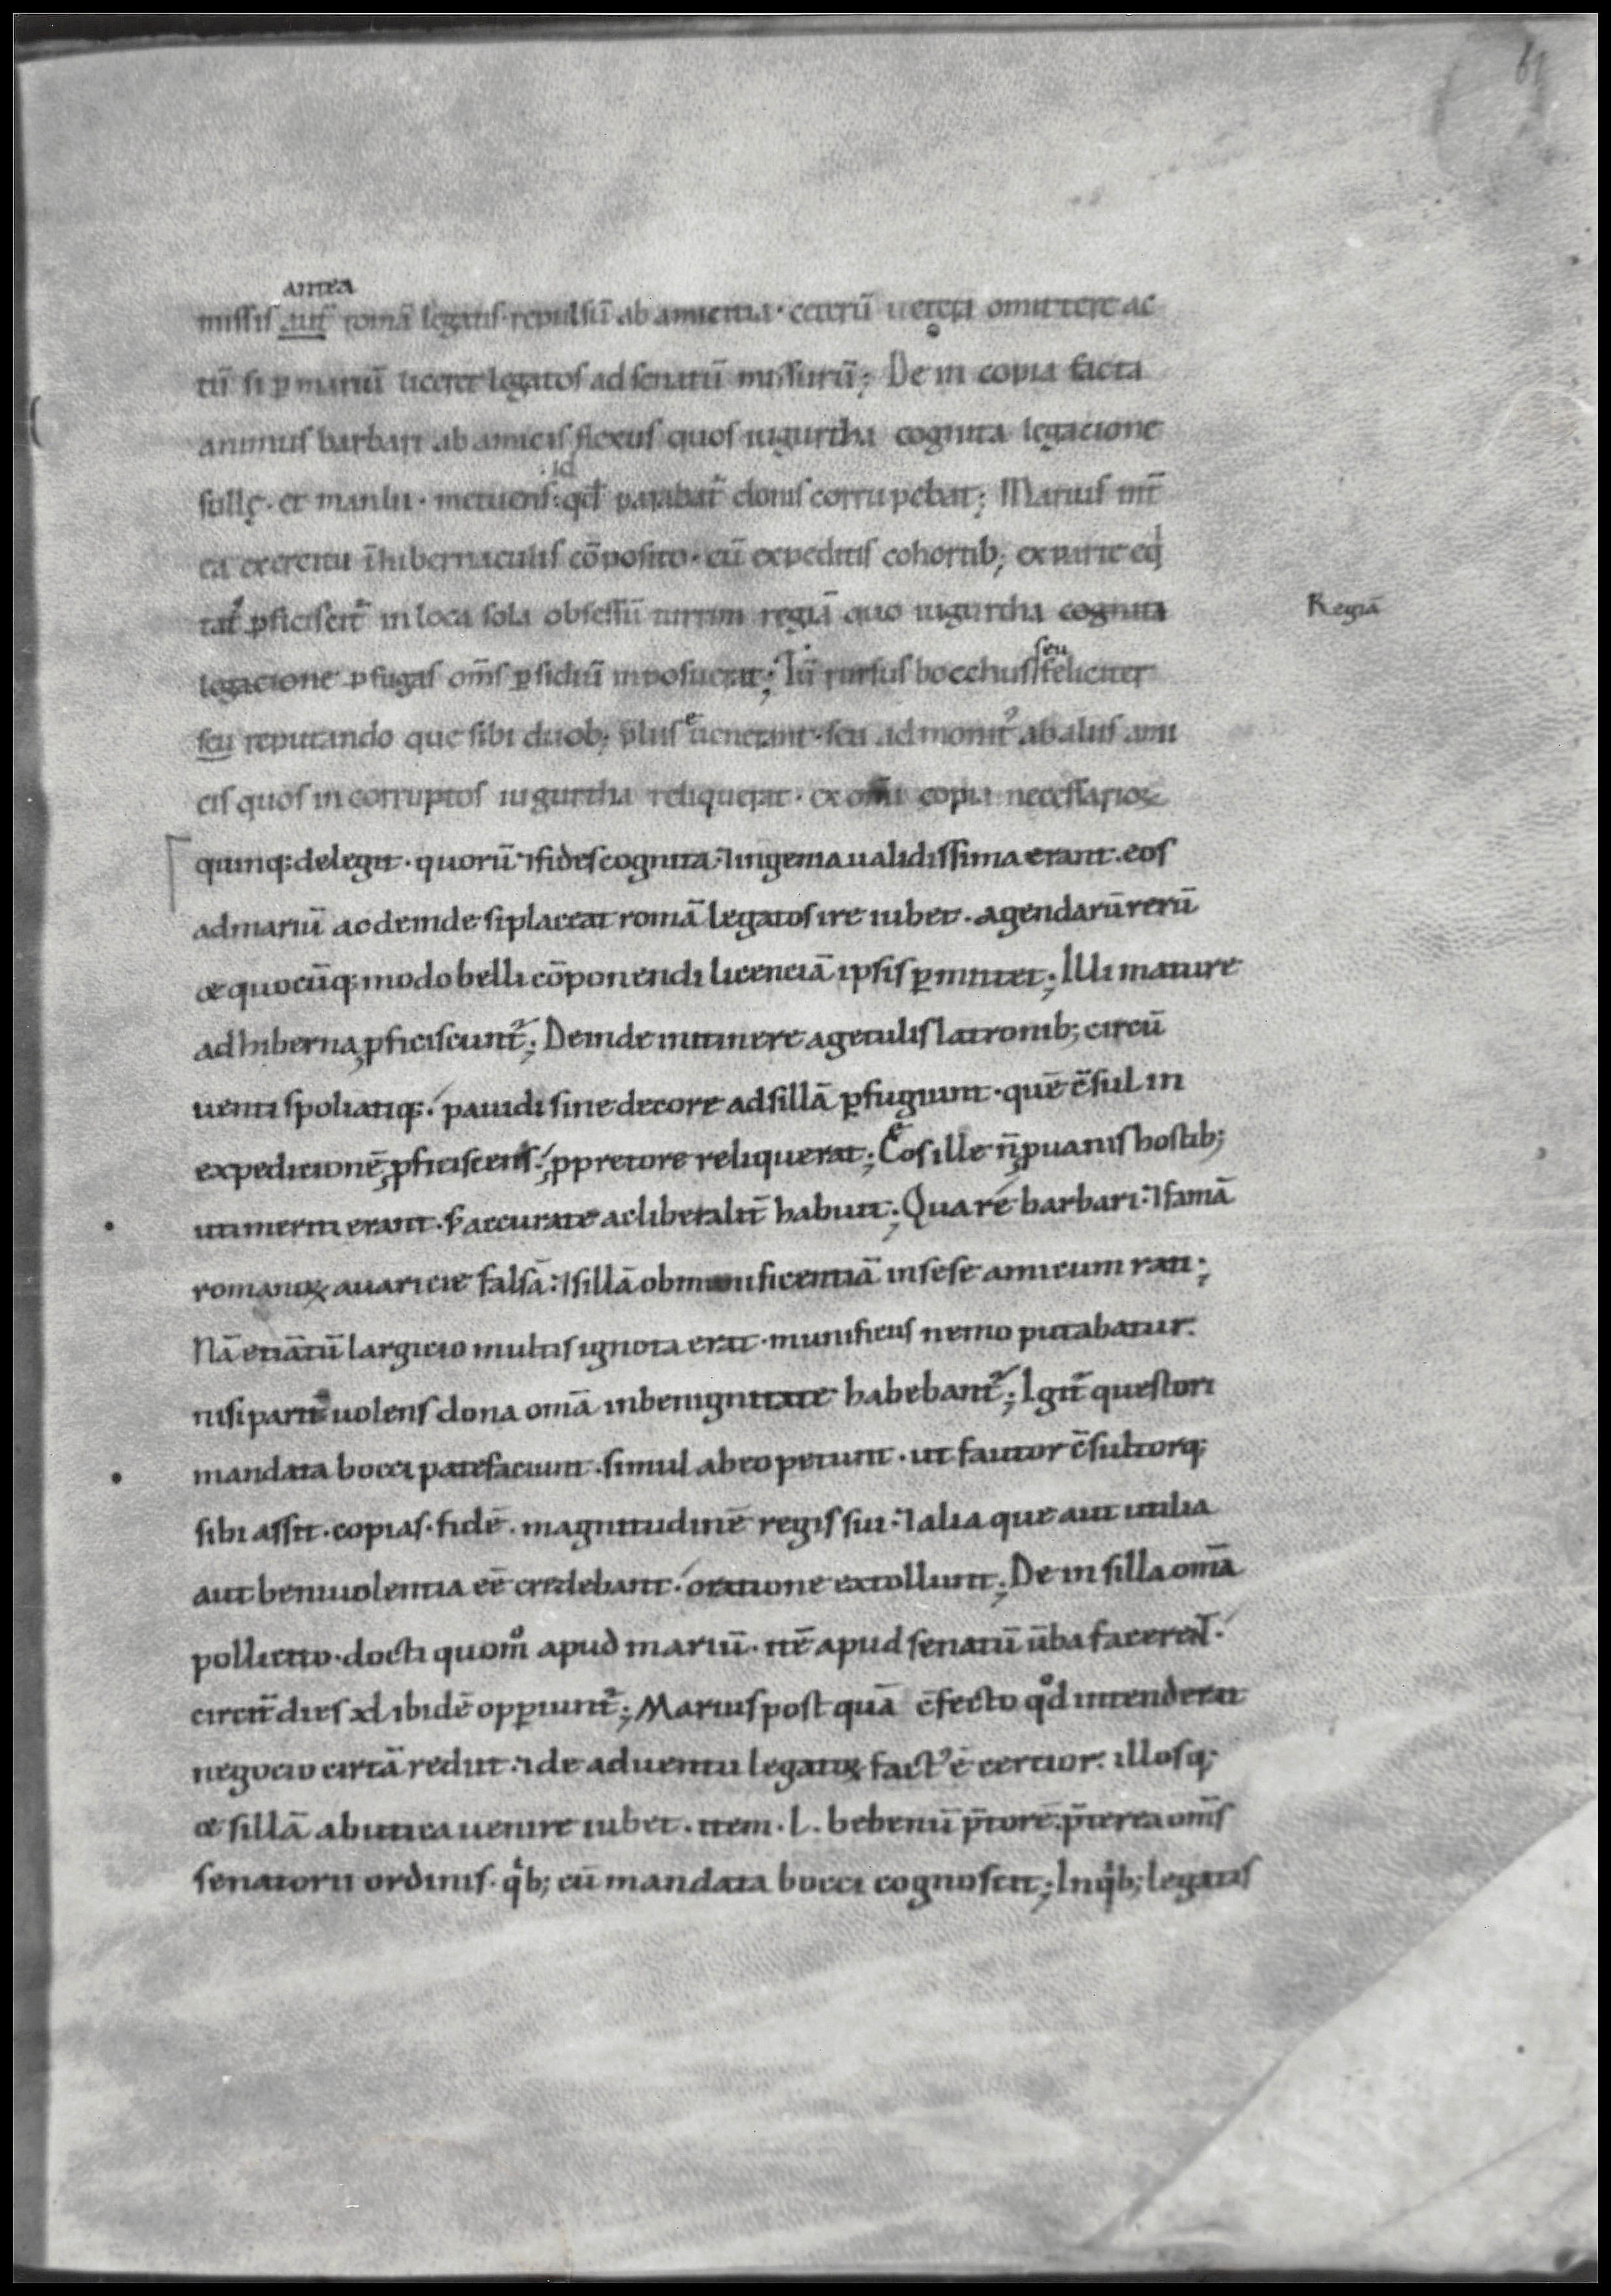 61
antea
missis aut̄ romā legatis repulsū ab amicitia · ceterū uetera omittere ac
tū si ꝑ mariū liceret legatos ad senatū missurū ; De in copia facta
animus barbari ab amicis flexus quos iugurtha cognita legacione
id
sullę · et manlii · metuens · qd̄ parabat̄ donis corrupebat ; Marius int̄
ea exercitu ī hibernaculis cōposito · cū expeditis cohortib; ex parte eq
tat' ꝓficiscit̄ in loca sola obsessū turrim regiā quo iugurtha cognita
Regiā
legacione ꝑfugas om̄s p̄sidiū inposuerat ; Tū rursus bocchus feliciter
seu
seu reputando que sibi duob; p̄liis uenerant · seu admonit' ab aliis ami
cis quos in corruptos iugurtha reliquerat · ex om̄i copia necessarioꝝ
quinq; delegit · quorū ⁊ fides cognita · ⁊ ingenia ualidissima erant · eos
ad mariū ac deinde si placeat romā legatos ire iubet · agendarū rerū
& quocūq; modo belli cōponendi licenciā ipsis ꝑmittet ; Illi mature
ad hiberna ꝓficiscunt̄ ; Deinde in itinere a getulis latronib; circū
uenti spoliatiq; · pauidi sine decore ad sillā ꝑfugiunt · quē c̄sul in
expedicionē ꝓficiscens · ꝓ pretore reliquerat ; Eos ille n̄ ꝓ uanis hostib;
uti meriti erant · s; accurate ac liberalit̄ habuit ; Qua re barbari · ⁊ famā
romanoꝝ auaricie falsā · ⁊ sillā ob munificentiā in sese amicum rati ;
Nā etiātū largicio multis ignota erat · munificus nemo putabatur ·
nisi parit̄ uolens dona om̄a in benignitate habebant̄ ; Igit̄ questori
mandata bocci patefaciunt · simul ab eo petunt · ut fautor c̄sultorq;
sibi assit · copias · fidē · magnitudinē regis sui · ⁊ alia que aut utilia
aut beniuolentia eē credebant · oratione extollunt ; De in silla om̄a
pollicito · docti quom̊ apud mariū · itē apud senatū ūba facerent ·
circit̄ dies xl ibidē opꝑiunt̄ ; Marius post quā c̄fecto qd̊ intenderat
negocio cirtā rediit · ⁊ de aduentu legatoꝝ fact' ē certior · illosq;
& sillā ab utica uenire iubet · item · L · bebenū p̄torē · p̄terea om̄s
senatorii ordinis · qⁱb; cū mandata bocci cognoscit ; In qⁱb; legatis